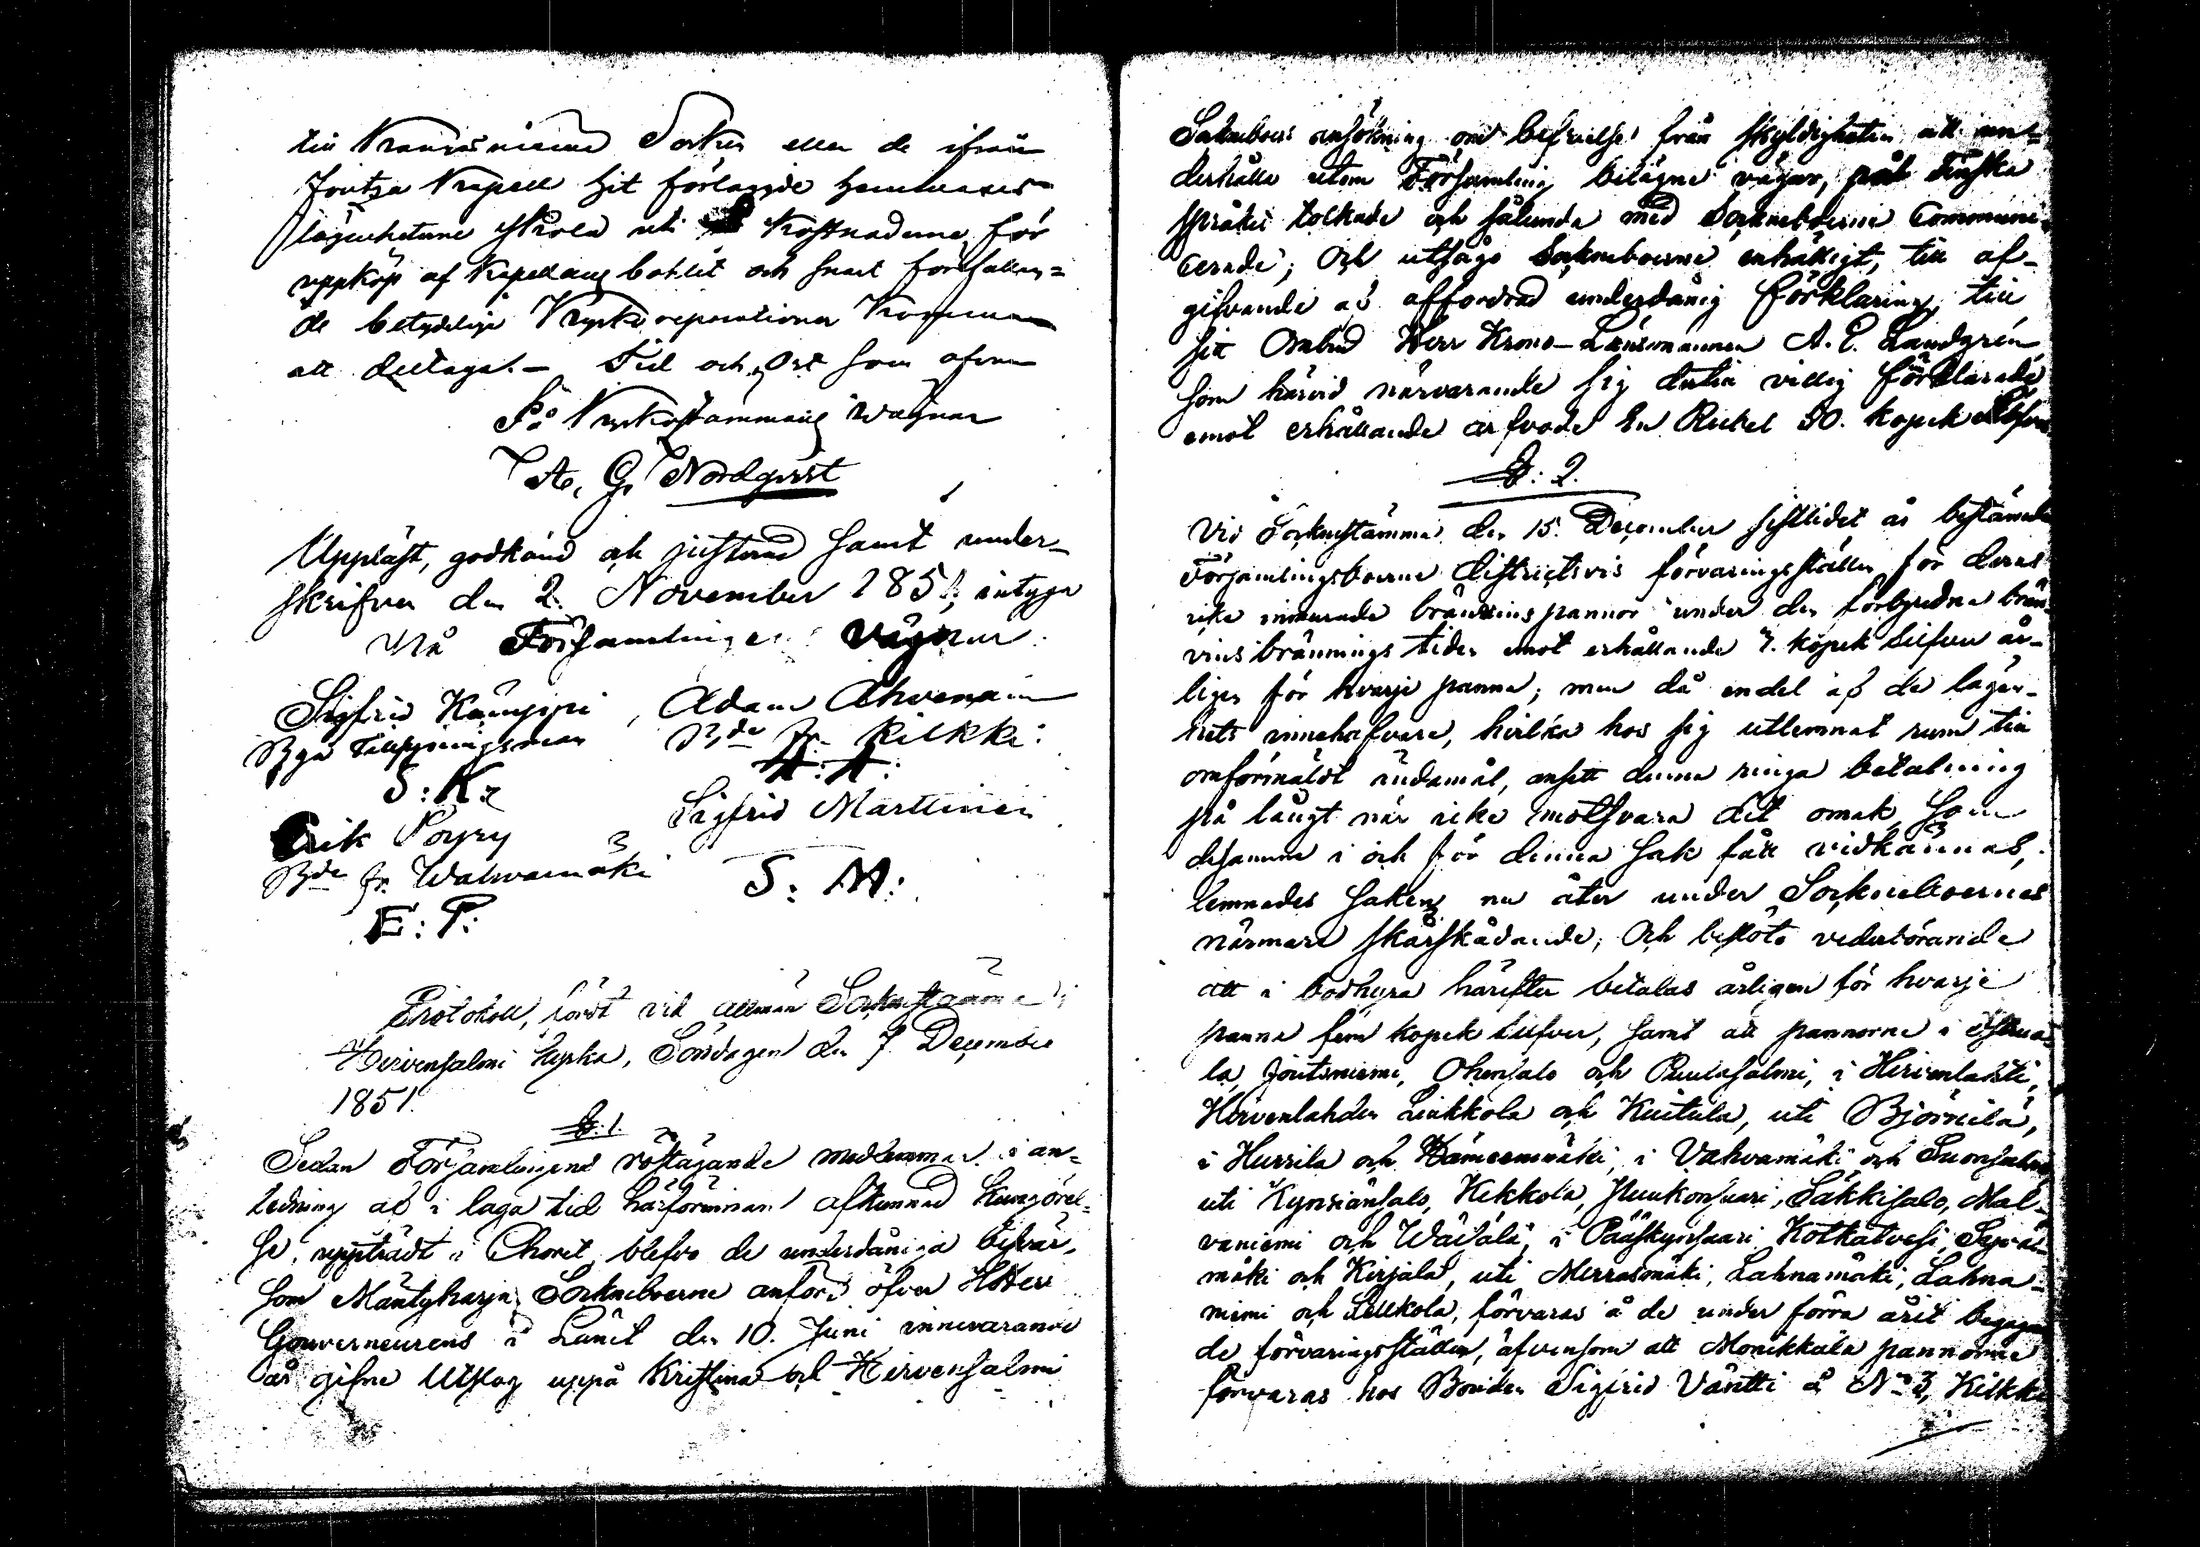 till Kransniemi Socken eller de ifrån
Joutsa Kapell hit förlaggde hemmans
lägenheterne skola uti Kostnaderne för
uppköp af Kapellans bohlet och snart förefallan=
de betydelige Kyrkoreparationer Komma
att deltaga. – Tid och Ort som ofvan
På Kyrkostämmans vägnar
A. G. Nordqvist
Uppläst, godkänd och justerad samt under-
skrifven den 2. November 1851, intyga
På Församlingens vägnar:
Sigfrid Kämppi, Adam Ahvenain
S: K: Bde fr. Kilkki:
A: A:
Erik Pöyry Sigfrid Marttinen
Bde fr. Wahvamäki S: M:
E: P:
Protokoll, fördt vid allmän Sockenstämma i
Hirvensalmi kyrka, Söndagen den 7. December
1851.
§: 1.
Sedan Församlingens röstägande medlemmar i an=
ledning af i laga tid härförinnan afkunnad kungörel=
se, uppträdt i Choret, blefvo de underdåniga besvär,
som Mäntyharju Sockneboerne anfört öfver HHerr
Gouverneurens i Länet den 10. Juni innevarande
år gifne Utslag uppå Kristina och Hirvensalmi
Sockneboers ansökning om befrielse från skyldigheten att un=
derhålla utom Församling belägne vägar, på Finska
språket tolkade och sålunda med Sockneboerne commune-
cerade; Och utsågo Sockneboerne enhälligt, till af-
gifvande af affordrad underdånig förklaring, till
sitt Ombud Herr Krono-Länsmannen A. E. Landgrén
som härvid närvarande sig dertill villig förklarade
emot erhållande arfvode En Rubel 50. kopek Silfver
§: 2.
Vid Sockenstämma den 15. December sistlidet år bestämde
Församlingsboerne districtsvis förvaringsställen för deras
icke inmurade brännvinspannor under den förbjudna brän-
vinsbränningstiden emot erhållande 3. kopek Silfver år-
ligen för hvarje panna; men då endel af de lägen-
hets innehafvare, hvilka hos sig utlemnat rum till
omförmäldt ändamål, ansett denna ringa betalning
på långt när icke motsvara det omak som
desamma i och för denna sak fått vidkännas,
lemnades saken nu åter under Sockneboernes
närmare skärskådande; Och beslöto vederbörande
att i bodhyra härefter betalas årligen för hvarje
panna fem kopek Silfver, samt att pannorne i
la, Joutsniemi, Ohensalo och Puulasalmi, i Hirvenlahti,
Hirvenlahden Leikkola och Kuitula, uti Björnilä,
i Hurrila och Hämeenmäki, i Vahvamäki och Suonsalmi
uti Kynsiänsalo, Kekkola, Huukonsaari, Säkkisalo, Mal-
vaniemi och Wäisälä, i Pääskynsaari, Kotkatvesi,
mäki och Kirjala, uti Merrasmäki, Lahnamäki, Lahna-
niemi och Lellkola, förvaras å de under förra året begagna
de förvaringsställen, äfvensom att Monikkala pannorne
förvaras hos Bonden Sigfrid Väntti å No 3, Kilkki